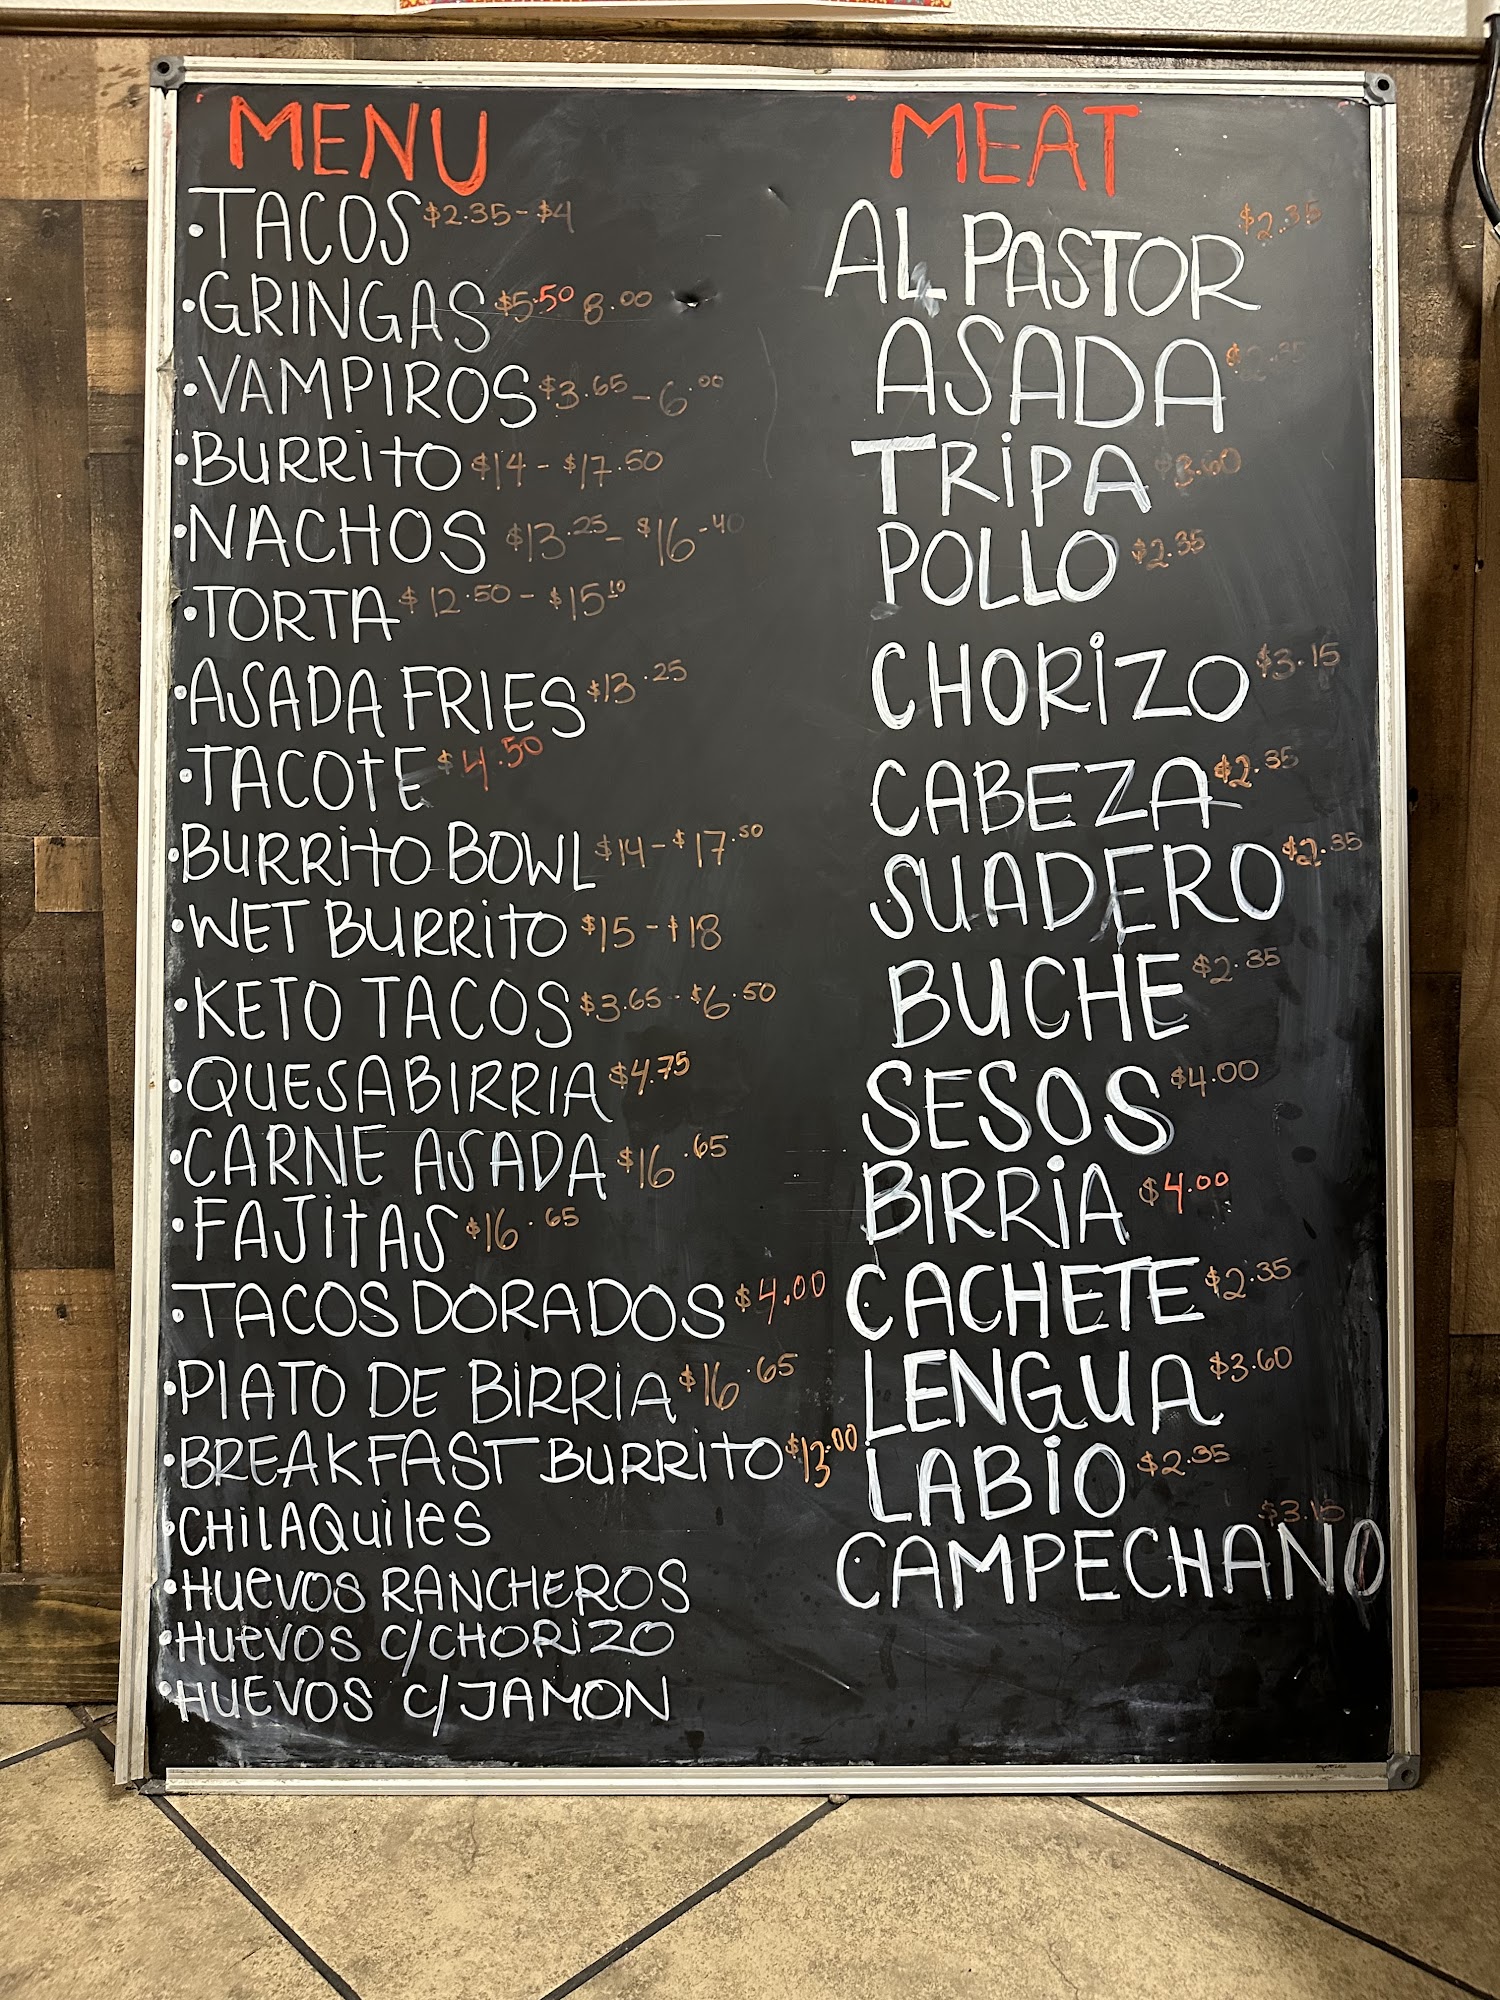 MENU
• TACOS $2.35 - $4
• GRINGAS $5.50 8.00
• VAMPIROS $3.65 - 6.00
• BURRITO $14 - $17.50
• NACHOS $13.25 - $16.40
• TORTA $12.50 - $15.10
• ASADA FRIES $13.25
• TACOTE $4.50
• BURRITO BOWL $14 - $17.50
• WET BURRITO $15 - $18
• KETO TACOS $3.65 - $6.50
• QUESABIRRIA $4.75
• CARNE ASADA $16.65
• FAJITAS $16.65
• TACOS DORADOS $4.00
• PLATO DE BIRRIA $16.65
• BREAKFAST BURRITO $13.00
• CHILAQUILES
• HUEVOS RANCHEROS
• HUEVOS C/CHORIZO
• HUEVOS C/JAMON
MEAT
AL PASTOR $2.35
ASADA $2.35
TRIPA $3.60
POLLO $2.35
CHORIZO $3.15
CABEZA $2.35
SUADERO $2.35
BUCHE $2.35
SESOS $4.00
BIRRIA $4.00
CACHETE $2.35
LENGUA $3.60
LABIO $2.35
CAMPECHANO $3.15